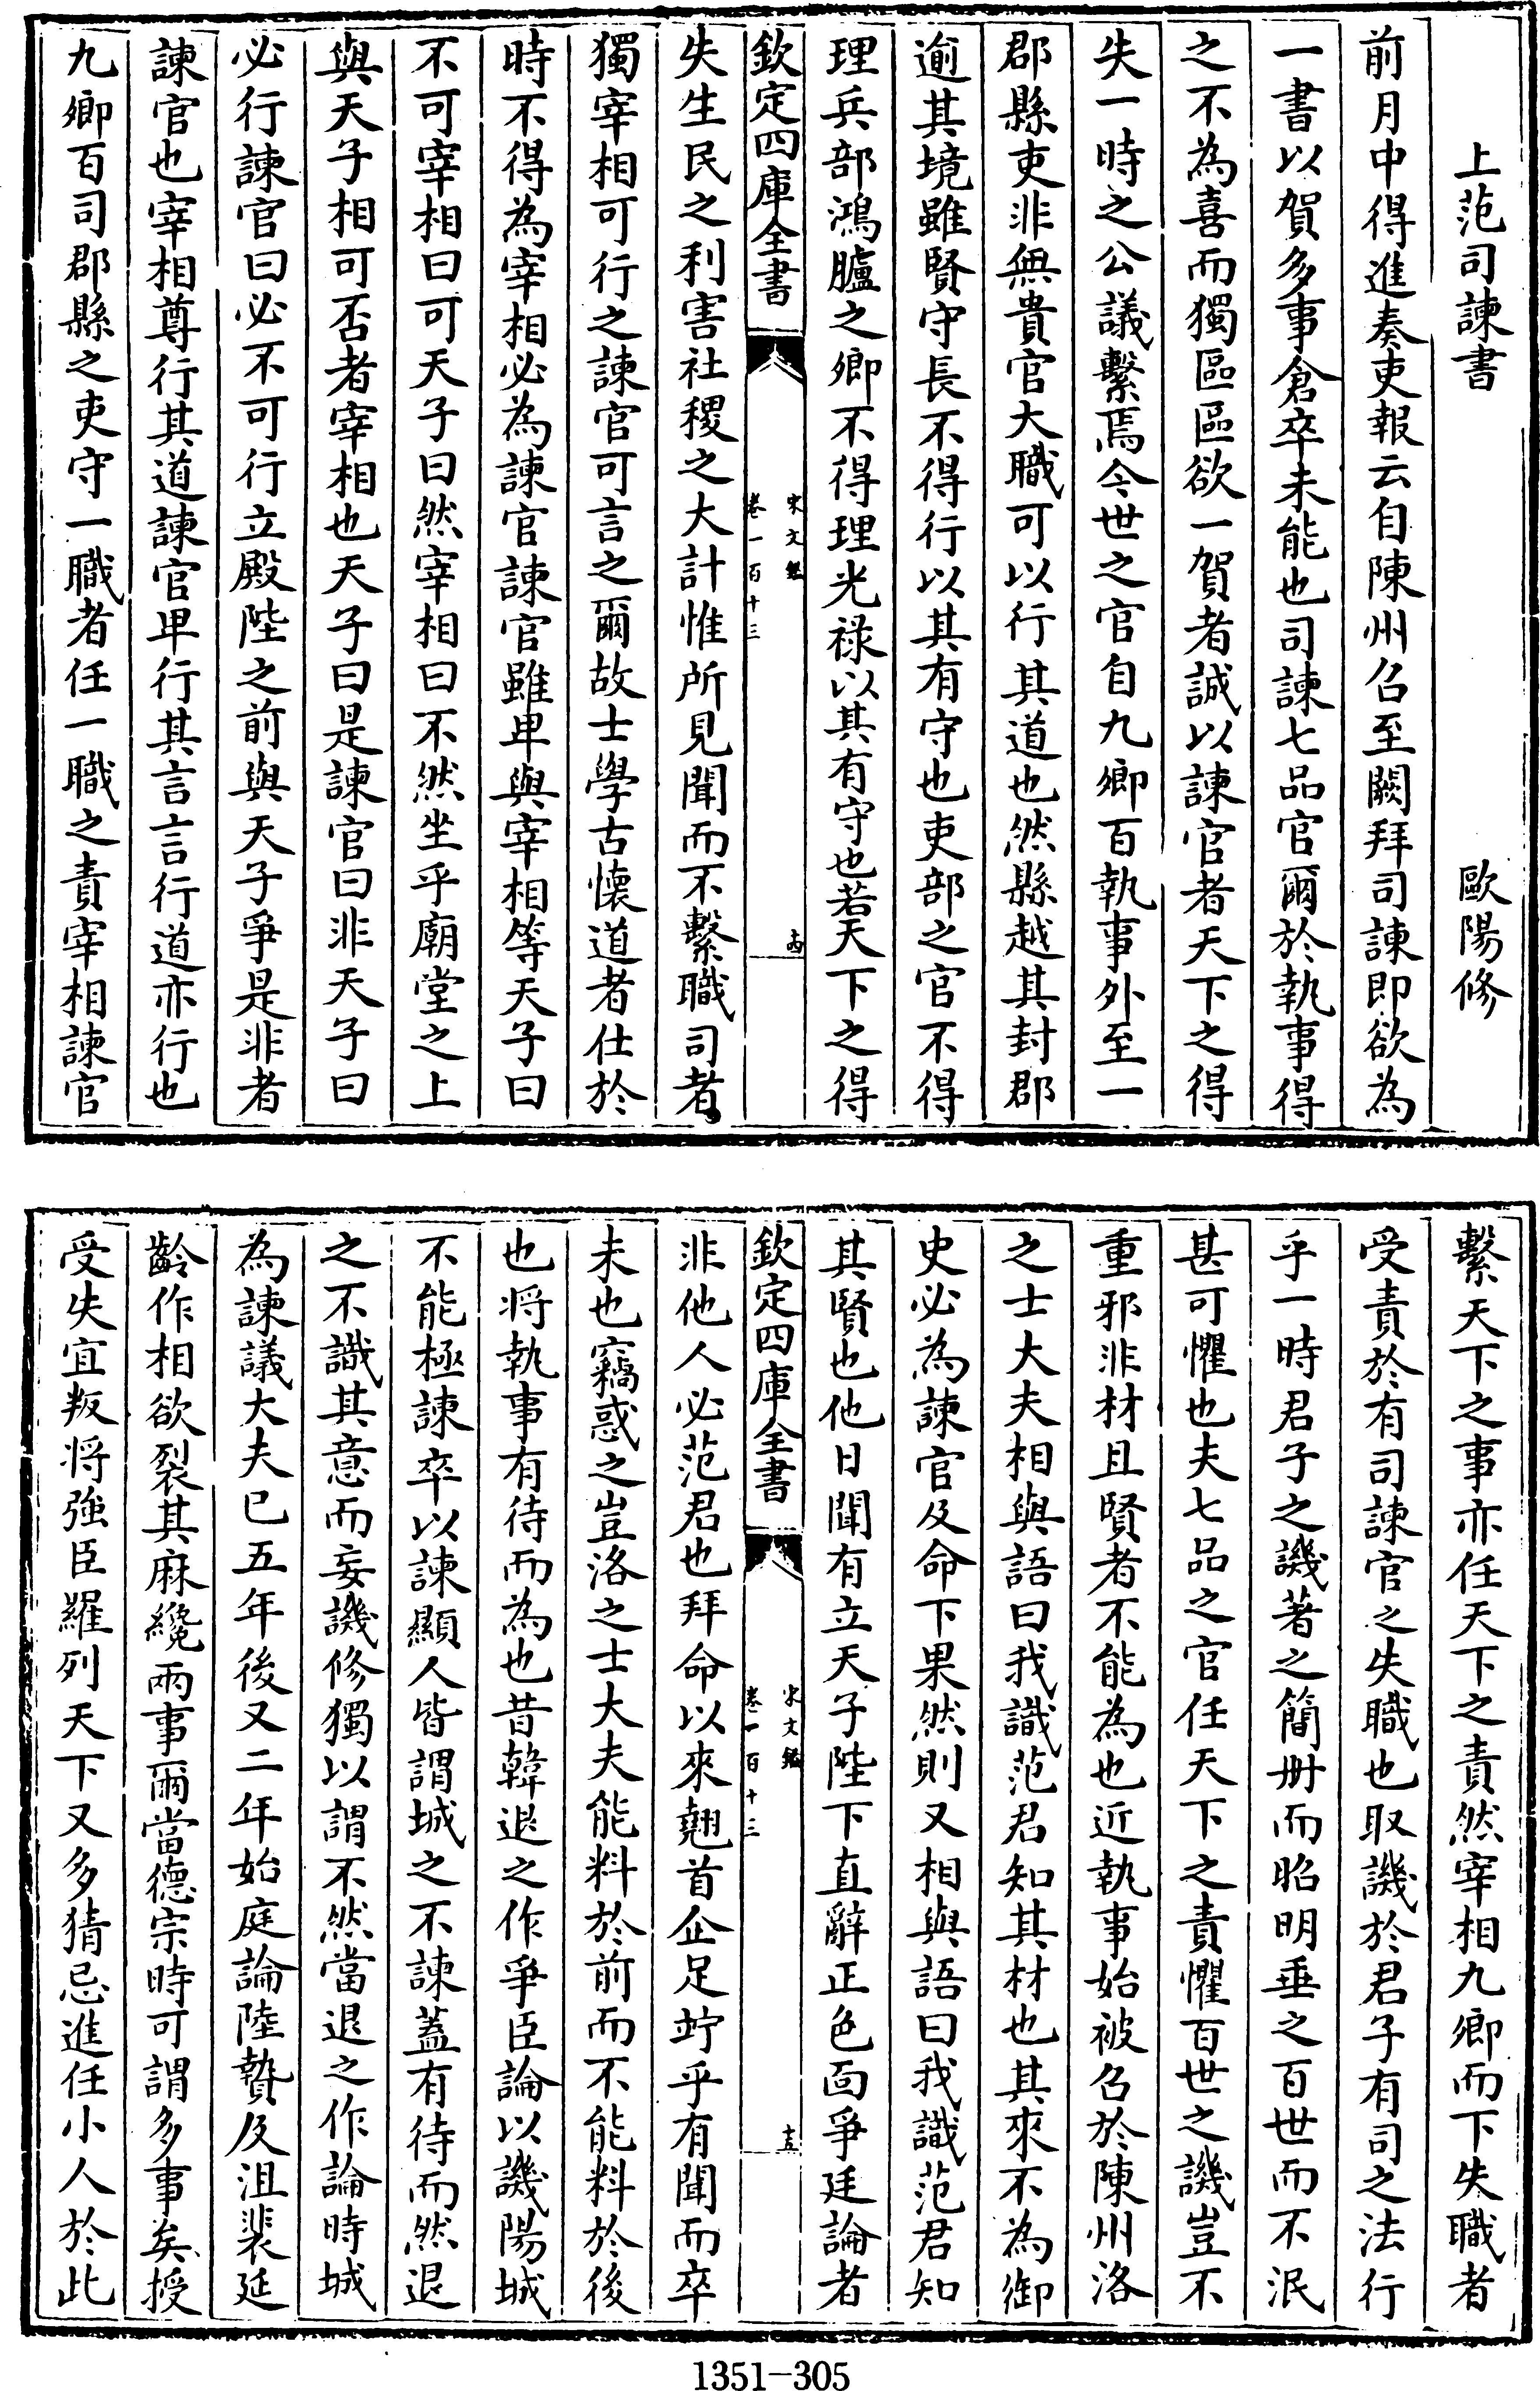 上范司諫書 歐陽修
前月中得進奏吏報云自陳州召至闕拜司諫即欲為
一書以賀多事倉卒未能也司諫七品官爾於執事得
之不為喜而獨區區欲一賀者誠以諫官者天下之得
失一時之公議繫焉今世之官自九卿百執事外至一
郡縣吏非無貴官大職可以行其道也然縣越其封郡
逾其境雖賢守長不得行以其有守也吏部之官不得
理兵部鴻臚之卿不得理光祿以其有守也若天下之得
欽定四庫全書
宋文鑑
卷一百十三
十四
失生民之利害社稷之大計惟所見聞而不繫職司者
獨宰相可行之諫官可言之爾故士學古懷道者仕於
時不得為宰相必為諫官諫官雖卑與宰相等天子曰
不可宰相曰可天子曰然宰相曰不然坐乎廟堂之上
與天子相可否者宰相也天子曰是諫官曰非天子曰
必行諫官曰必不可行立殿陛之前與天子爭是非者
諫官也宰相尊行其道諫官卑行其言言行道亦行也
九卿百司郡縣之吏守一職者任一職之責宰相諫官
繫天下之事亦任天下之責然宰相九卿而下失職者
受責於有司諫官之失職也取譏於君子有司之法行
乎一時君子之譏著之簡冊而昭明垂之百世而不泯
甚可懼也夫七品之官任天下之責懼百世之譏豈不
重邪非材且賢者不能為也近執事始被召於陳州洛
之士大夫相與語曰我識范君知其材也其來不為御
史必為諫官及命下果然則又相與語曰我識范君知
其賢也他日聞有立天子陛下直辭正色面爭廷論者
欽定四庫全書
宋文鑑
卷一百十三
十五
非他人必范君也拜命以來翹首企足竚乎有聞而卒
未也竊惑之豈洛之士大夫能料於前而不能料於後
也將執事有待而為也昔韓退之作爭臣論以譏陽城
不能極諫卒以諫顯人皆謂城之不諫蓋有待而然退
之不識其意而妄譏修獨以謂不然當退之作論時城
為諫議大夫已五年後又二年始庭論陸贄及沮裴延
齡作相欲裂其麻纔兩事爾當德宗時可謂多事矣授
受失宜叛將強臣羅列天下又多猜忌進任小人於此
1351-305